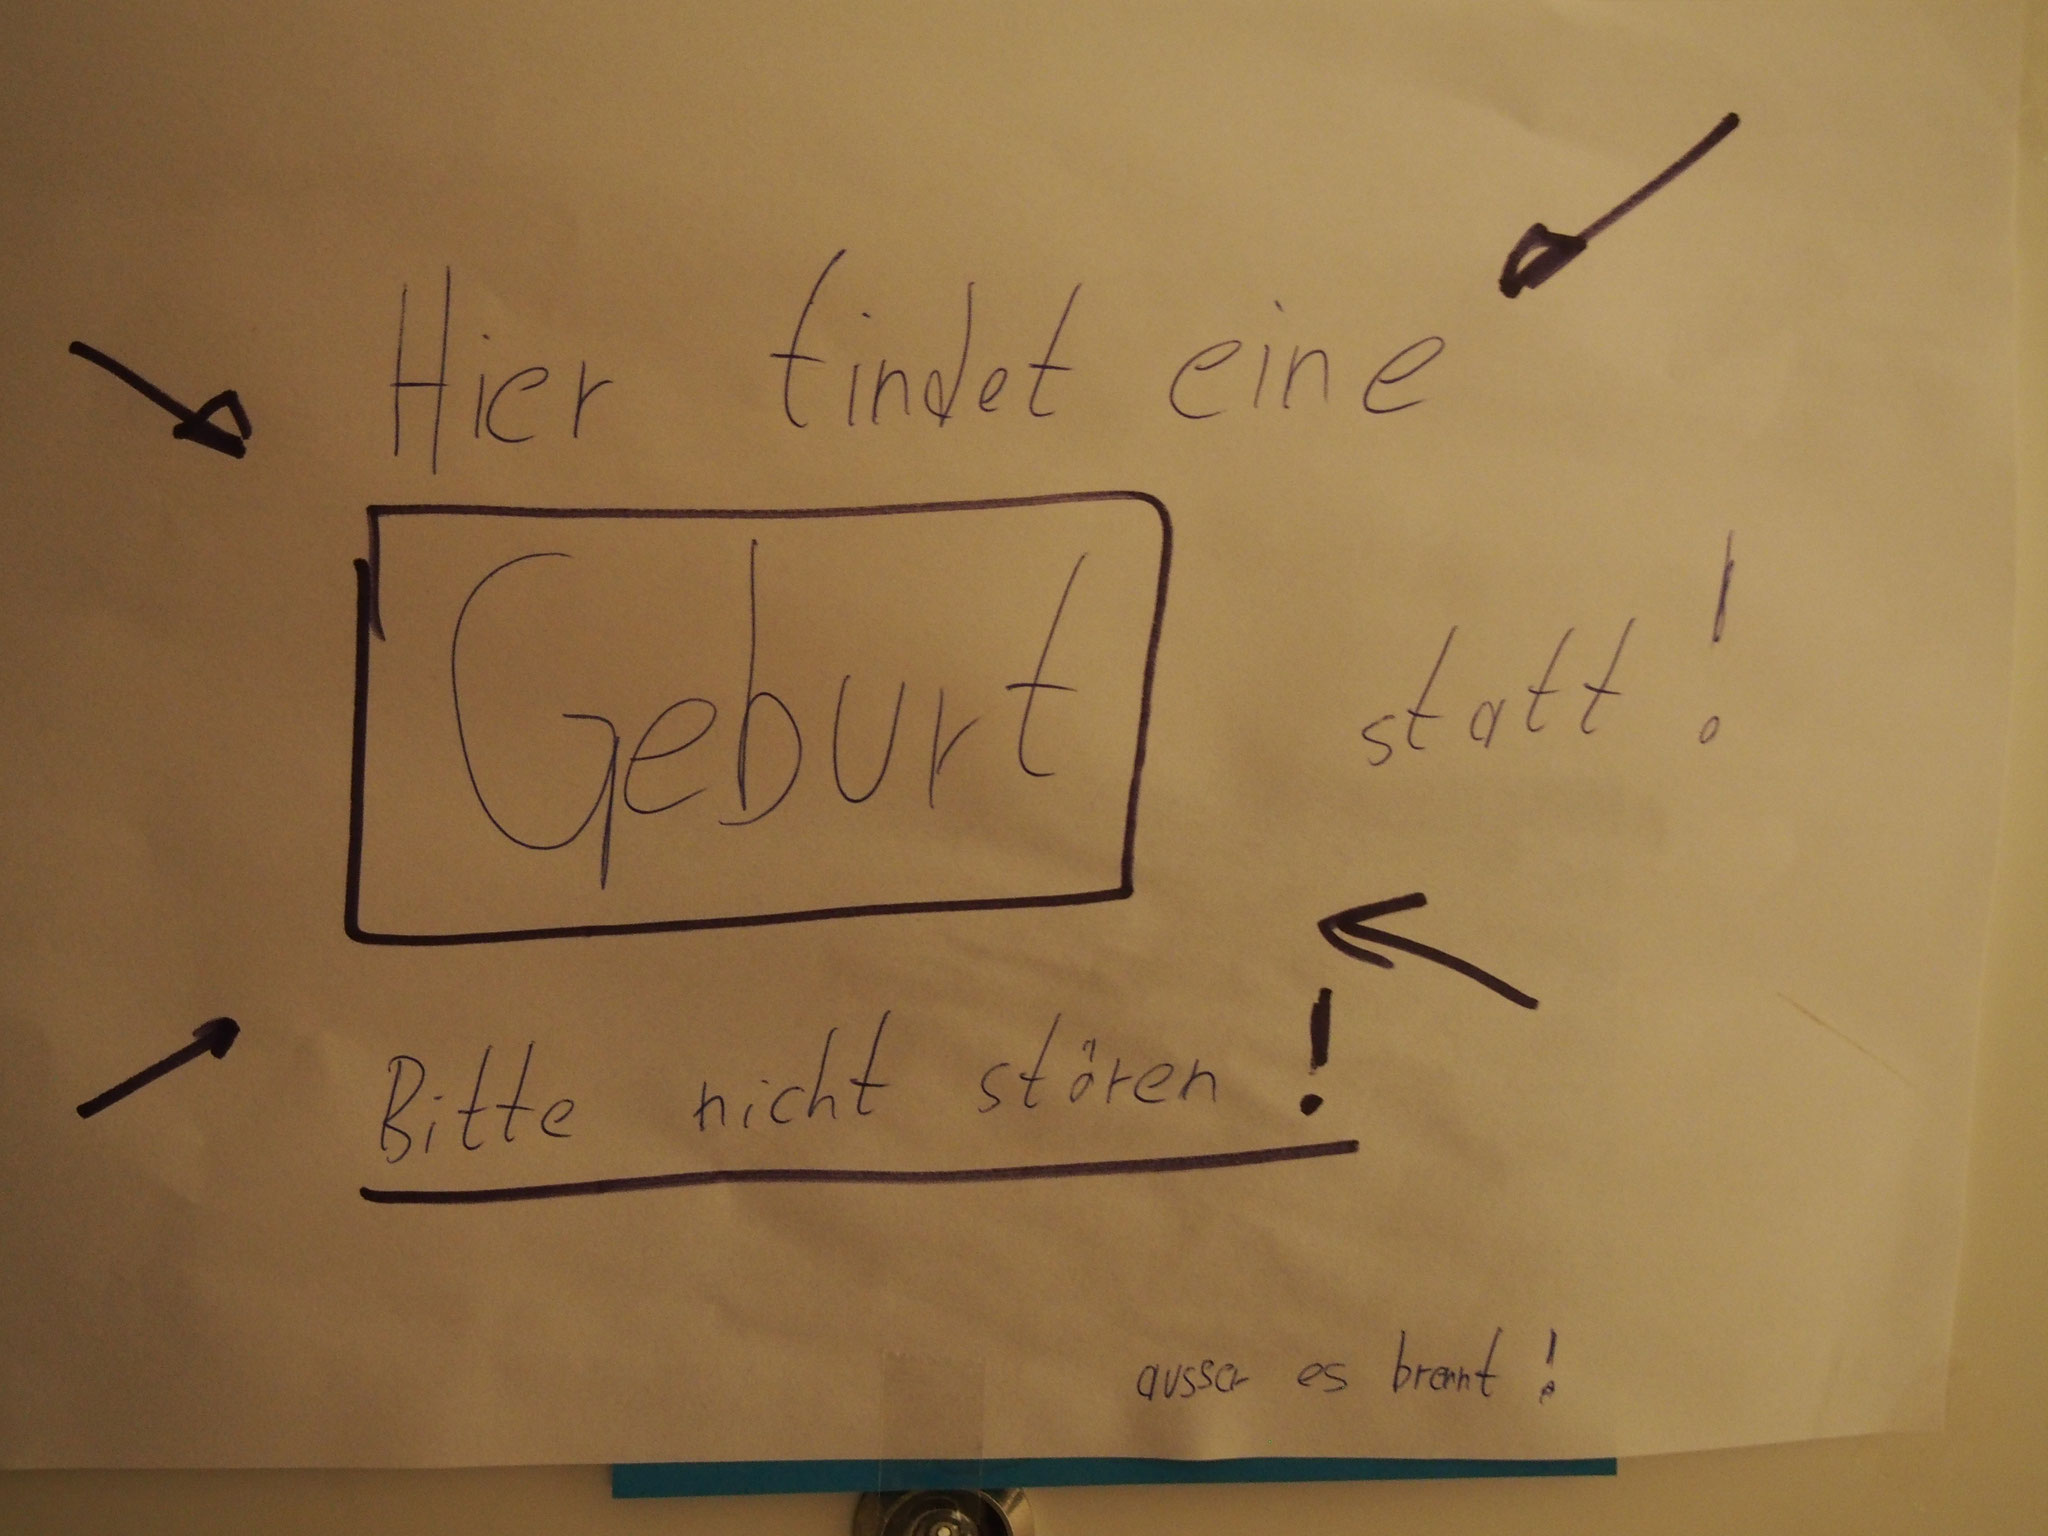 Hier findet eine
Geburt statt!
Bitte nicht stören!
ausser es brennt!